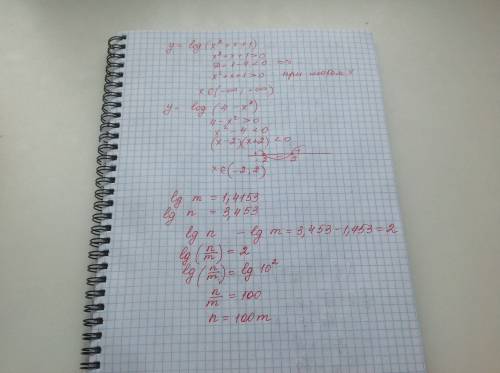 y = log(x² + x + 1)
x² + x + 1 > 0
D = 1 - 4 < 0 =>
x² + x + 1 > 0 при любом x
x ∈ (-∞; -∞)
y = log (4 - x²)
4 - x² > 0
x² - 4 < 0
(x-2)(x+2) < 0
-2 2
x ∈ (-2; 2)
lg m = 1,4153
lg n = 3,453
lg n - lg m = 3,453 - 1,453 = 2
lg (n/m) = 2
lg (n/m) = lg 10²
n/m = 100
n = 100m